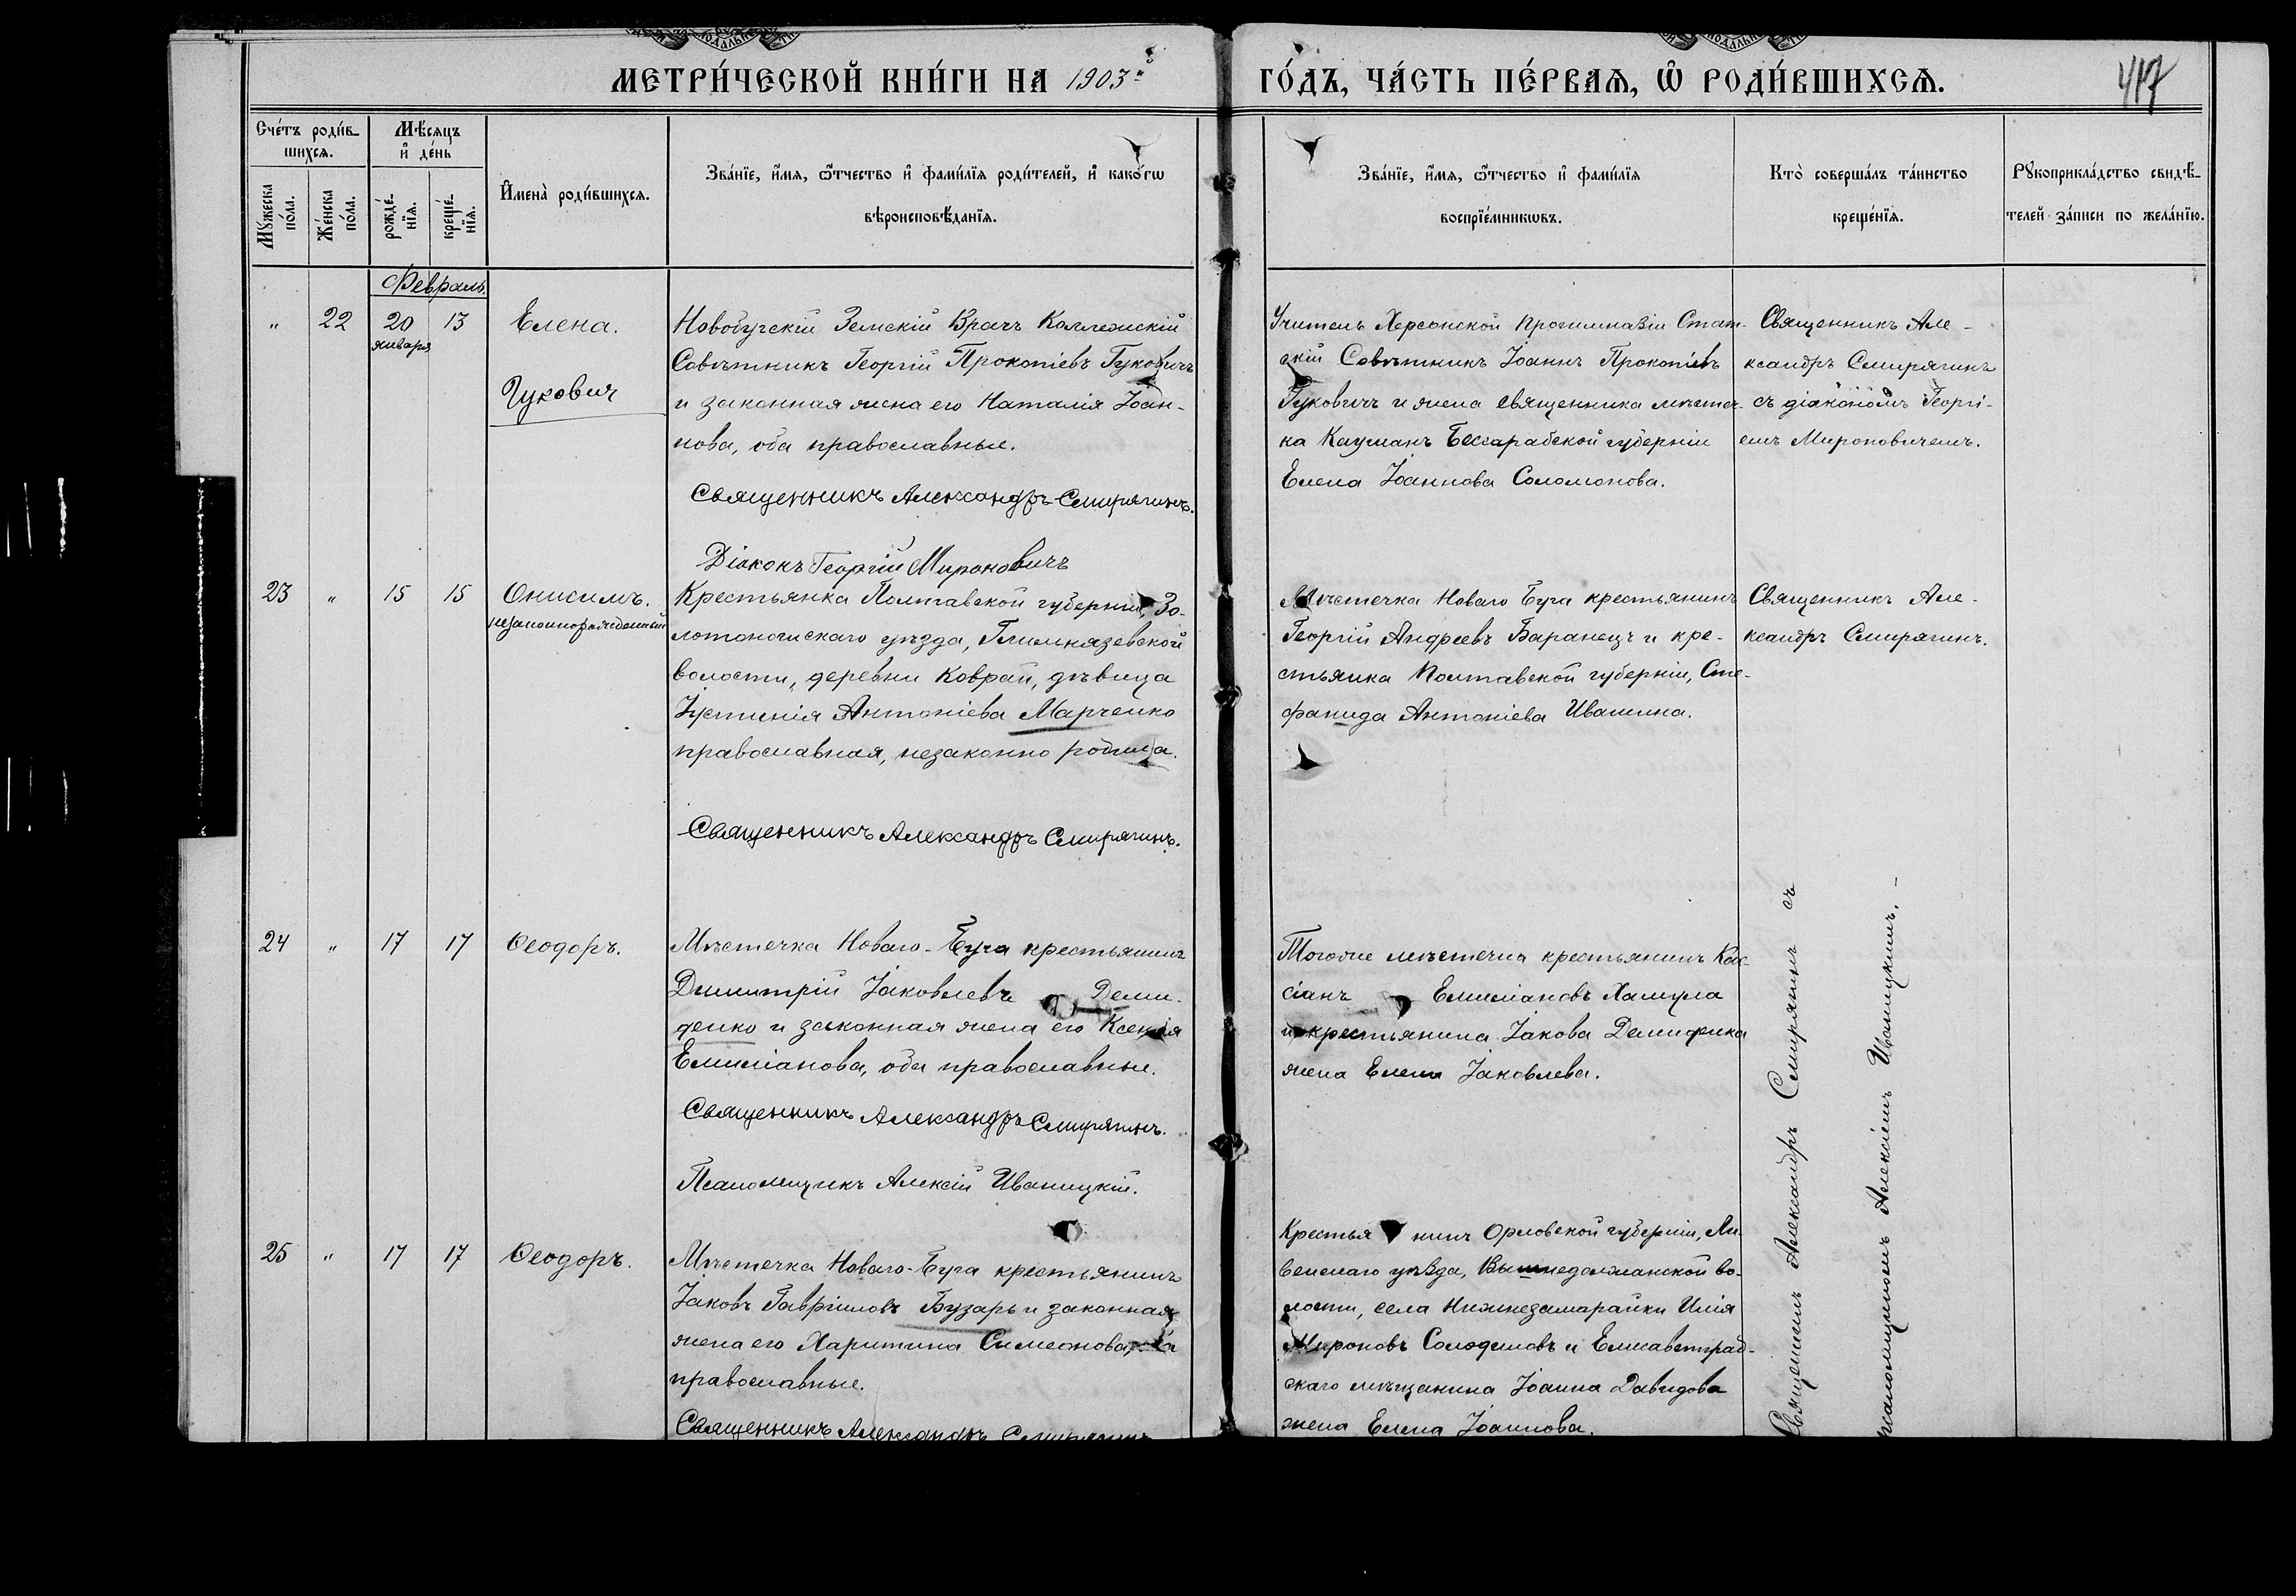 МЕТРИ́ЧЕСКОЙ КНИ́ГИ НА 1903й ГО́ДЪ, ЧА́СТЬ ПЕ́РВАѦ, Ѡ҆ РОДИ́ВШИХСѦ.
417
Сче́тъ роди́в-
шихсѧ.
Мѣ́сѧцъ
и҆ де́нь
Мꙋ́жеска
по́ла.
Же́нска
по́ла.
рожде́-
нїѧ.
креще́-
нїѧ.
И҆мена̀ роди́вшихсѧ.
Зва́нїе, и҆́мѧ, ѻ҆́тчество и҆ фами́лїѧ роди́телей, и҆ како́гѡ
вѣроисповѣ́данїѧ.
Зва́нїе, и҆́мѧ, ѻ҆́тчество и҆ фами́лїѧ
воспрїе́мникѡвъ.
Кто̀ соверша́лъ та́инство
креще́нїѧ.
Рꙋкоприкла́дство свидѣ́-
телей за́писи по жела́нїю.
Февраль.
" 22 20 13 Елена.
января
Гукович
Новобугскій Земскій Врачъ Коллежскій
Совѣтникъ Георгій Прокопіевъ Гуковичъ
и законная жена его Наталія Іоан-
нова, оба православные.
Священникъ Александръ Смирягинъ.
Діаконъ Георгій Мироновичъ
Учитель Херсонской Прогимназіи Стат-
скій Совѣтникъ Іоаннъ Прокопіевъ
Гуковичъ и жена священника мѣстеч-
ка Каушанъ Бессарабской губерніи
Елена Іоаннова Соломонова.
Священникъ Але-
ксандръ Смирягинъ
съ діакономъ Георгі-
емъ Мироновичемъ.
23 " 15 15 Онисимъ.
незаконнорожденный
Крестьянка Полтавской губерніи, Зо-
лотоношскаго уѣзда, Гельмязевской
волости, деревни Коврай, дѣвица
Іустинія Антоніева Марченко
православная, незаконно родила.
Священникъ Александръ Смирягинъ.
Мѣстечка Новаго Буга крестьянинъ
Георгій Андреевъ Баранецъ и кре-
стьянка Полтавской губерніи, Сте-
фанида Антоніева Ивашина.
Священникъ Але-
ксандръ Смирягинъ.
24 " 17 17 Ѳеодоръ.
Мѣстечка Новаго-Буга крестьянинъ
Димитрій Іаковлевъ Деми-
денко и законная жена его Ксенія
Емиліанова, оба православные.
Священникъ Александръ Смирягинъ.
Псаломщикъ Алексій Иваницкій.
Тогоже мѣстечка крестьянинъ Кас-
сіанъ Емиліановъ Хамула
и крестьянина Іакова
жена Елена Іаковлева.
25 " 17 17 Ѳеодоръ.
Мѣстечка Новаго-Буга крестьянинъ
Іаковъ Гавріиловъ Бузарь и законная
жена его Харитина Симеонова, оба
православные.
Священникъ Александръ Смирягинъ
Крестьянинъ Орловской губерніи, Ли-
венскаго уѣзда, волости, села Илія
Мироновъ Солодиловъ и Елисаветград-
скаго мѣщанина Іоанна Давидова
жена Елена Іоаннова.
Священникъ Александръ Смирягинъ съ
псаломщикомъ Алексіемъ Иваницкимъ.